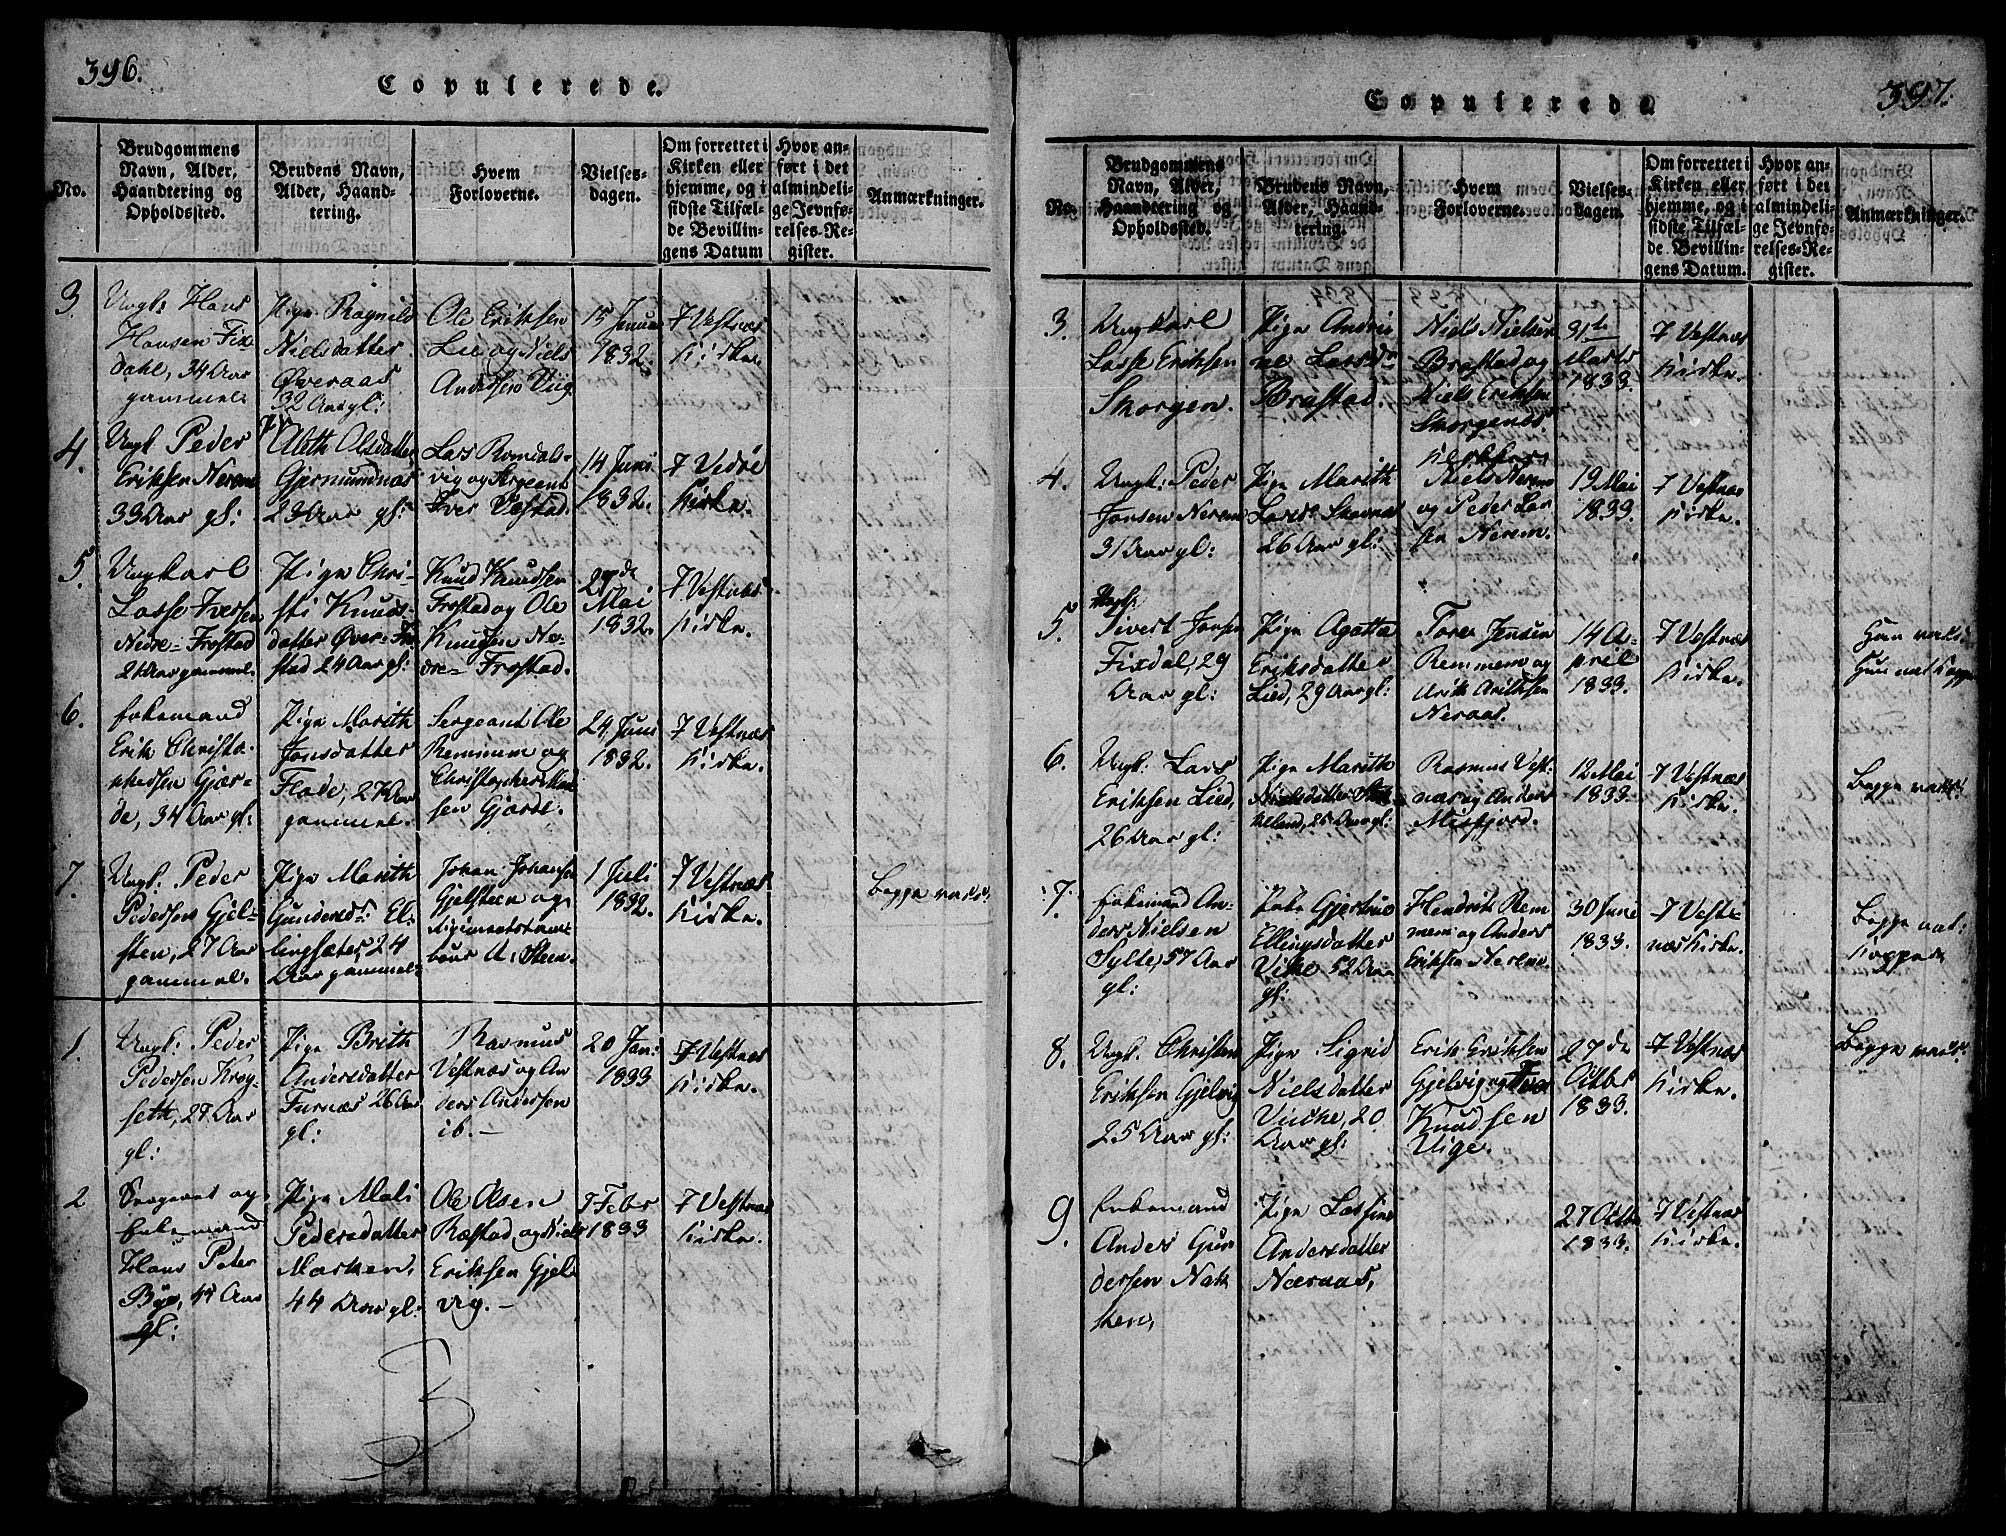 396.
Copulerede.
No.
Brudgommens
Navn, Alder,
Haandtering og
Opholdssted.
Brudens Navn,
Alder, Haand-
tering.
Hvem
Forloverne.
Vielses-
dagen.
Om forrettet i
Kirken eller
hjemme, og i
sidste Tilfæl-
de Bevillin-
gens Datum
Hvor an-
ført i det
almindeli-
ge Jevnfø-
relses-Re-
gister.
Anmærkninger.
3.
Ungk: Hans
Hansen Fix-
dahl, 34 Aar
gammel.
Pige Ragnild
Nielsdatter
Øveraas
32 Aar gl:
Ole Eriksen
Lie og Niels
Andersen Viig.
15 Januar
1832.
I Vestnæs
Kirke.
4.
Ungk Peder
Eriksen Nerem
33 Aar gl:
Olsdatter
Gjermundnæs
23 Aar gl:
Lars Romdals-
vig og Sergeant
Iver
14 Juni
1832.
I Vedøe
Kirke.
5.
Ungkarl
Lasse Iversen
Nedre-Frostad
Aar gammel.
Pige Chri-
sti Knuds-
datter Øver-Fro-
stad 24 Aar gl:
Knud Knudsen
Frostad og Ole
Knudsen Ne-
dre-Frostad.
27de
Mai
1832.
I Vestnæs
Kirke.
6.
Enkemand
Erik Christo-
phersen Gjær-
de, 34 Aar gl:
Pige Marith
Jonsdatter
Flode, 27 Aar
gammel.
Sergeant Ole
Remmem og
Christopher
sen Gjærde.
24 Juni
1832.
I Vestnæs
Kirke.
7.
Ungk: Peder
Pedersen Gjel-
sten, 27 Aar
gammel.
Pige Marith
Gundersd: El-
lingsæter, 24
Aar gammel
Johan Johansen
Gjelsteen og
Regimentstam-
bour U: Steen.
1 Juli
1832.
I Vestnæs
Kirke.
Begge vacc:
1.
Ungk: Peder
Pedersen
seth, 27 Aar
gl:
Pige Brith
Andersdatter
Furnæs 26 Aar
gl:
Rasmus
Vestnæs og An
ders Andersen
ib.-
20 Jan:
1833
I Vestnæs
Kirke.
2
Sergeant og
Enkemand
Hans Peter
Bye, 44 Aar
gl:
Pige Mali
Pedersdatter
44 Aar gl:
Ole Olsen
Ræstad, og Niels
Eriksen Gjel
vig.-
Febr
1833
I Vestnæs
Kirke.
397.
Copulerede
No.
Brudgommens
Navn, Alder,
Haandtering og
Opholdssted.
Brudens Navn,
Alder, Haand-
tering.
Hvem
Forloverne.
Vielses-
dagen.
Om forrettet i
Kirken eller
hjemme, og i
sidste Tilfæl-
de Bevillin-
gens Datum.
Hvor an-
ført i det
almindeli-
ge Jevnfø-
relses-Re-
gister.
Anmærkninger.
3.
Ungkarl
Lasse Eriksen
Skorgen.
Pige Andri-
ne Larsdr
Brastad.
Niels Nielsen
Brastad og
Niels Eriksen
Skorgenes
31te
Marts
1833.
I Vestnæs
Kirke.
4.
Ungk: Peder
Jonsen Nerem
31 Aar gl:
Pige Marith
Larsd:
26 Aar gl:
Niels Nerem
og Peder Lar
sen Nerem.
19 Mai
1833.
I Vestnæs
Kirke.
5.
Ungk:
Sivert Jonsen
Fixdal, 29
Aar gl:
Pige Agatta
Eriksdatter
Lied, 29 Aar gl:
Tore Jensen
Remmem og
Neraas.
14 A-
pril
1833.
I Vestnæs
Kirke.
Han vacc:
Hun nat Kopper
6.
Ungk: Lars
Eriksen Lied,
26 Aar gl:
Pige Marith
Nielsdatter
25 Aar gl:
Rasmus Vest-
næs og Anders
Misfjord.
12 Mai
1833.
I Vestnæs
Kirke.
Begge vacc:
7.
Enkemand An-
ders Nielsen
Sylte, 57 Aar
gl:
Enke Gjertrue
Ellingsdatter
Vike 52 Aar
gl:
Hendrik Rem
mem og Anders
Eriksen Nerem.
30 Juni
1833.
I Vest-
næs Kirke.
Begge nat:
Kopper
8.
Ungk. Christen
Eriksen Gjelvig
25 Aar gl:
Pige Sigrid
Nielsdatter
Vicke, 20
Aar gl:
Erik Eriksen
Gjelvig og Iver
Knudsen
Vige.
27de
Octbr
1833.
I Vestnæs
Kirke.
Begge vacc:
9.
Enkemand
Anders Gun
dersen Nak
ken,
Pige Lassine
Andersdatter
Næraas,
27 Octbr
1833.
I Vestnæs
Kirke.